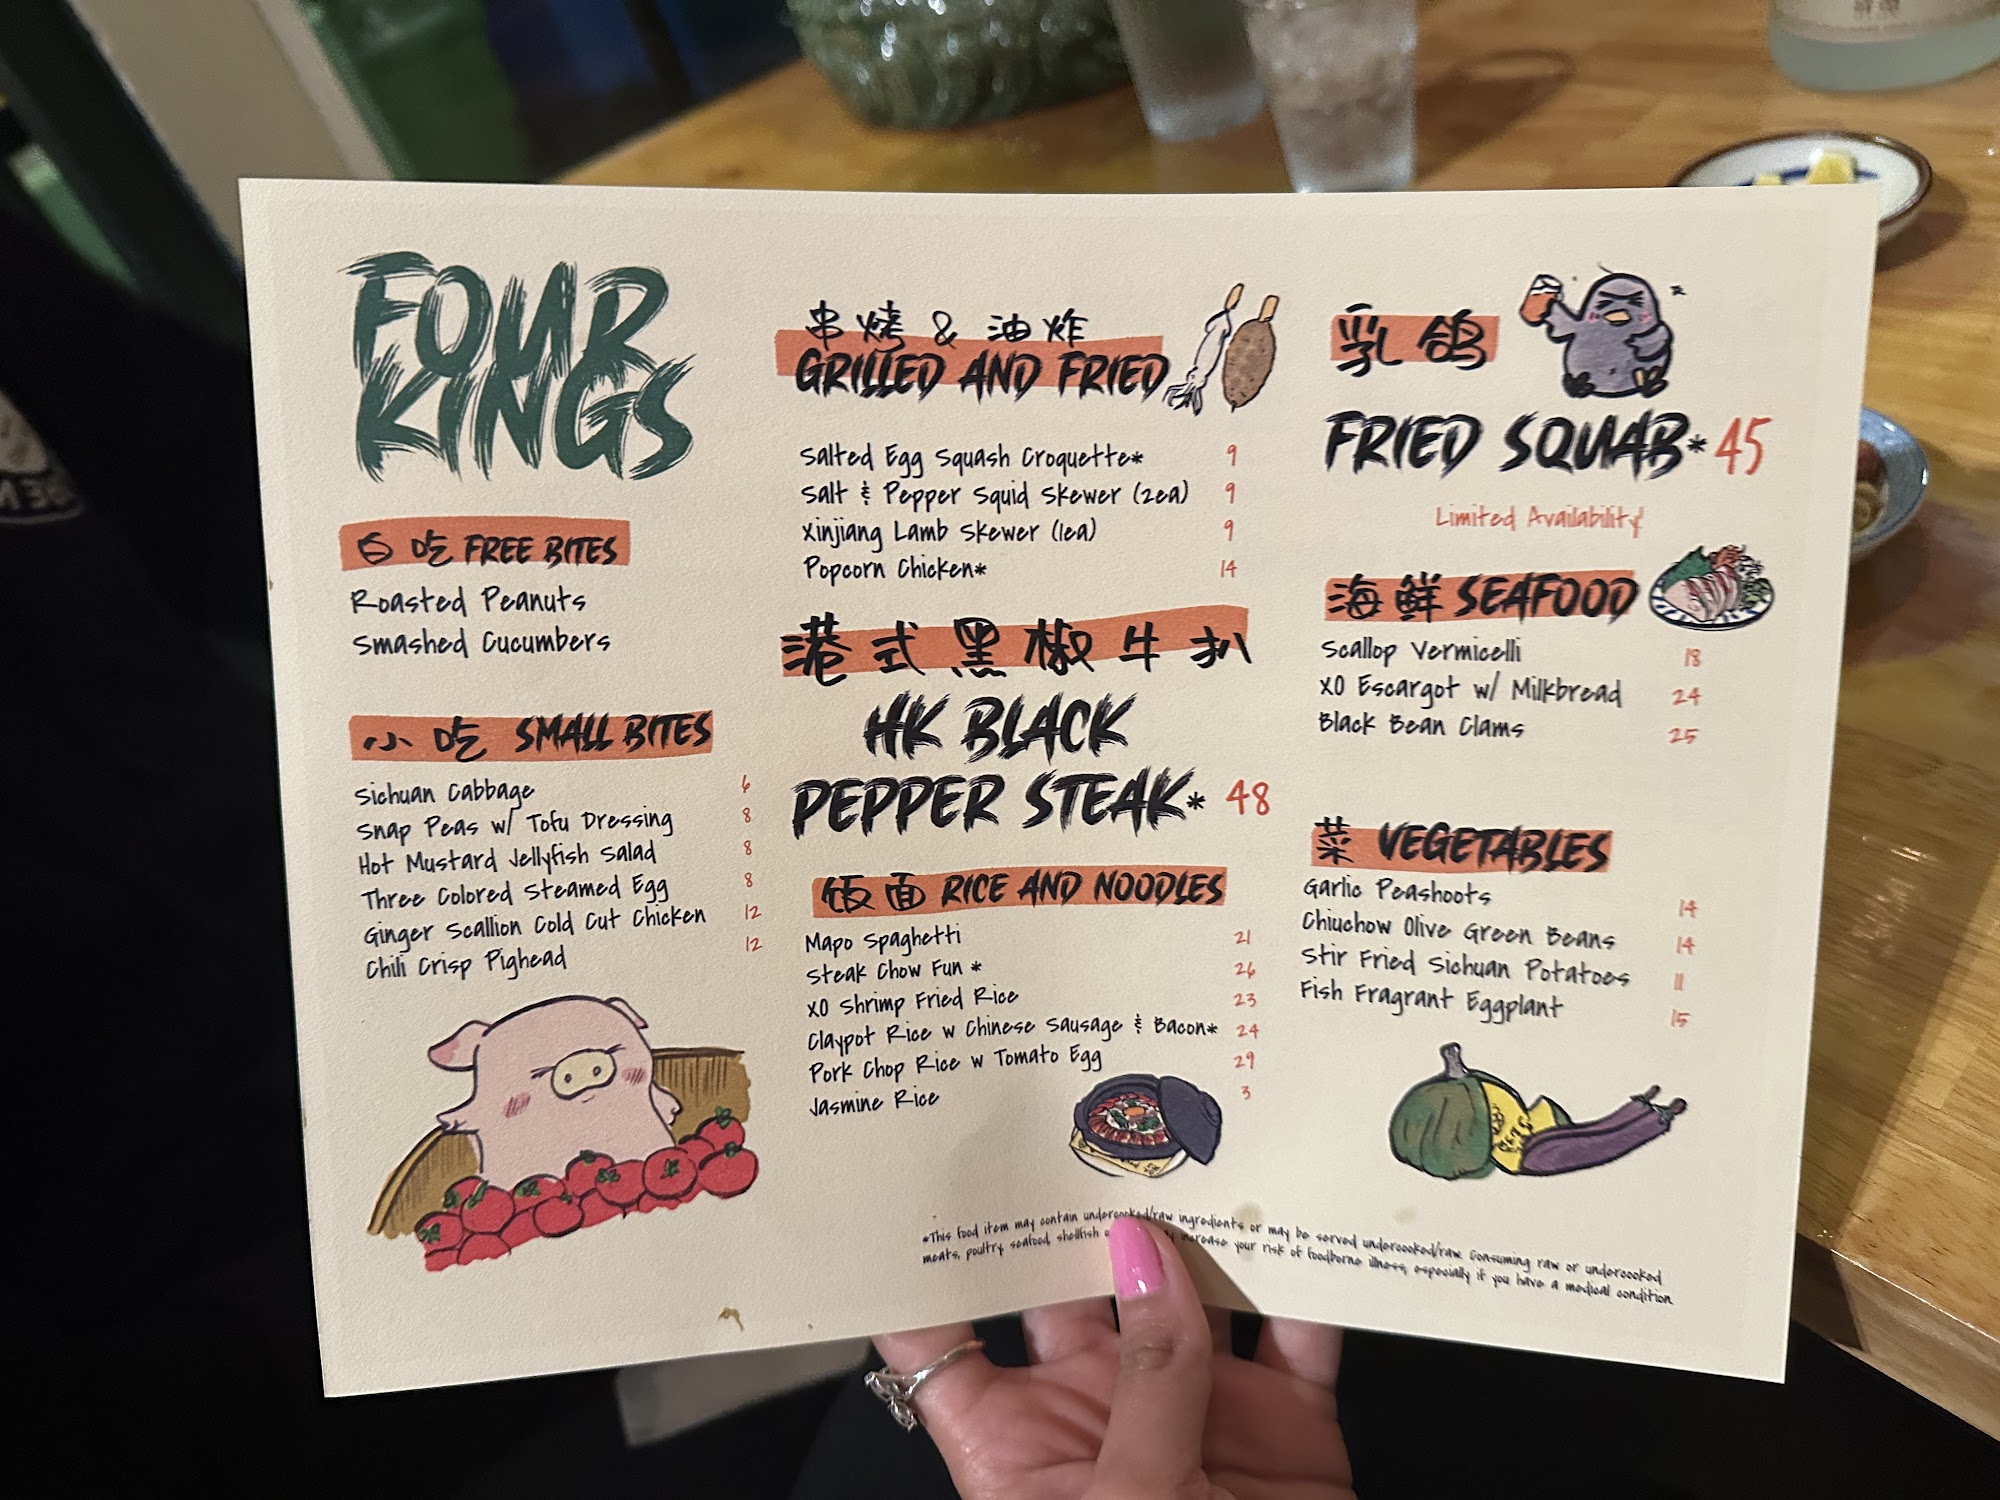 FOUR
KINGS
白 吃 FREE BITES
Roasted Peanuts
Smashed Cucumbers
小 吃 SMALL BITES
Sichuan Cabbage 6
Snap Peas w/ Tofu Dressing 8
Hot Mustard Jellyfish Salad 8
Three Colored Steamed Egg 8
Ginger Scallion Cold Cut Chicken 12
Chili Crisp Pighead 12
串 烤 & 油 炸
GRILLED AND FRIED
Salted Egg Squash Croquette* 9
Salt & Pepper Squid Skewer (2ea) 9
Xinjiang Lamb Skewer (1ea) 9
Popcorn Chicken* 14
港 式 黑 椒 牛 扒
HK BLACK
PEPPER STEAK* 48
饭 面 RICE AND NOODLES
Mapo Spaghetti 21
Steak Chow Fun * 26
XO Shrimp Fried Rice 23
Claypot Rice w Chinese Sausage & Bacon* 24
Pork Chop Rice w Tomato Egg 29
Jasmine Rice 3
乳 鸽
FRIED SQUAB* 45
Limited Availability!
海 鲜 SEAFOOD
Scallop Vermicelli 18
XO Escargot w/ Milkbread 24
Black Bean Clams 25
菜 VEGETABLES
Garlic Peashoots 14
Chiuchow Olive Green Beans 14
Stir Fried Sichuan Potatoes 11
Fish Fragrant Eggplant 15
*This food item may contain undercooked/raw ingredients or may be served undercooked/raw. Consuming raw or undercooked
meats, poultry, seafood, shellfish increase your risk of foodborne illness, especially if you have a medical condition.